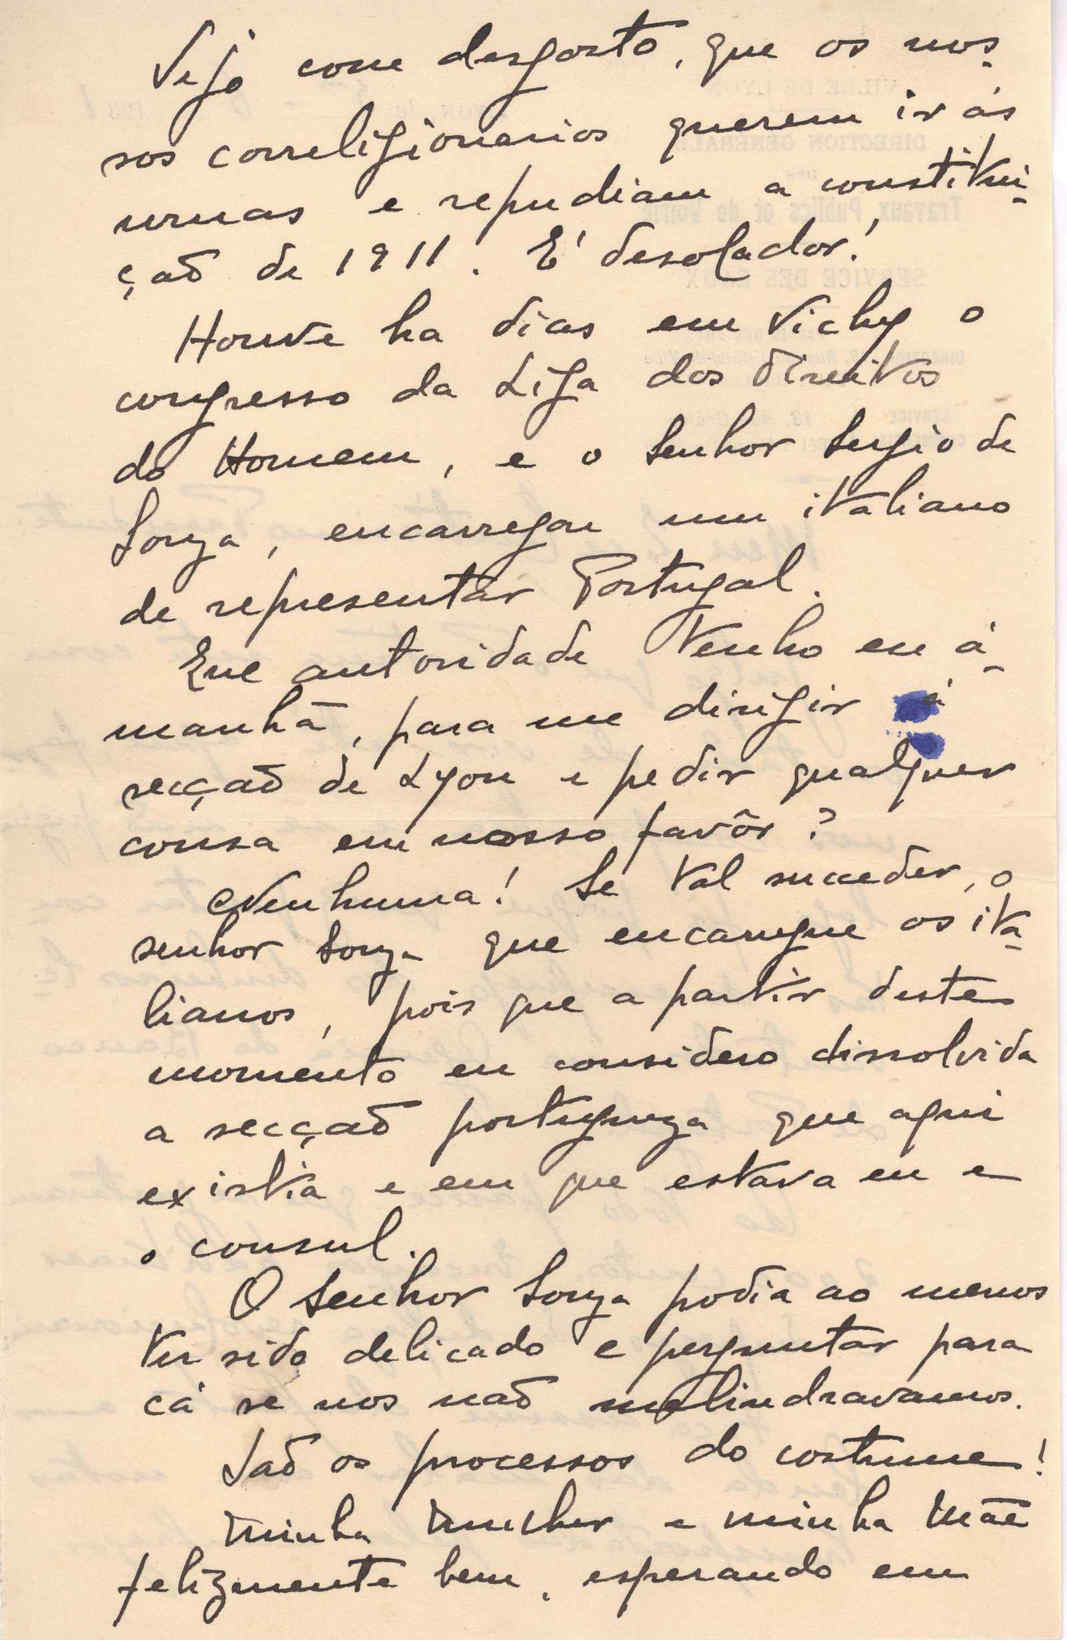 Vejo com desgosto, que os nos-
sos correligionarios querem ir ás
urnas e repudiam a constitui-
ção de 1911. E' desolador!
Houve ha dias em Vichy o
congresso da Liga dos Direitos
do Homem, e o Senhor Sergio de
Souza, encarregou um italiano
de representar Portugal.
Que autoridade tenho eu á-
manhã, para me dirigir á
secção de Lyon e pedir qualquer
cousa em nosso favôr?
Nenhuma! Se tal succeder, o
senhor Souza que encarregue os ita-
lianos, pois que a partir deste
momento eu considero dissolvida
a secção portugueza que aqui
existia e em que estava eu e
o consul.
O Senhor Souza podia ao menos
ter sido delicado e perguntar para
cá se nos não melindravamos.
São os processos do costume!
Minha Mulher e minha Mãe
felizmente bem, esperando em